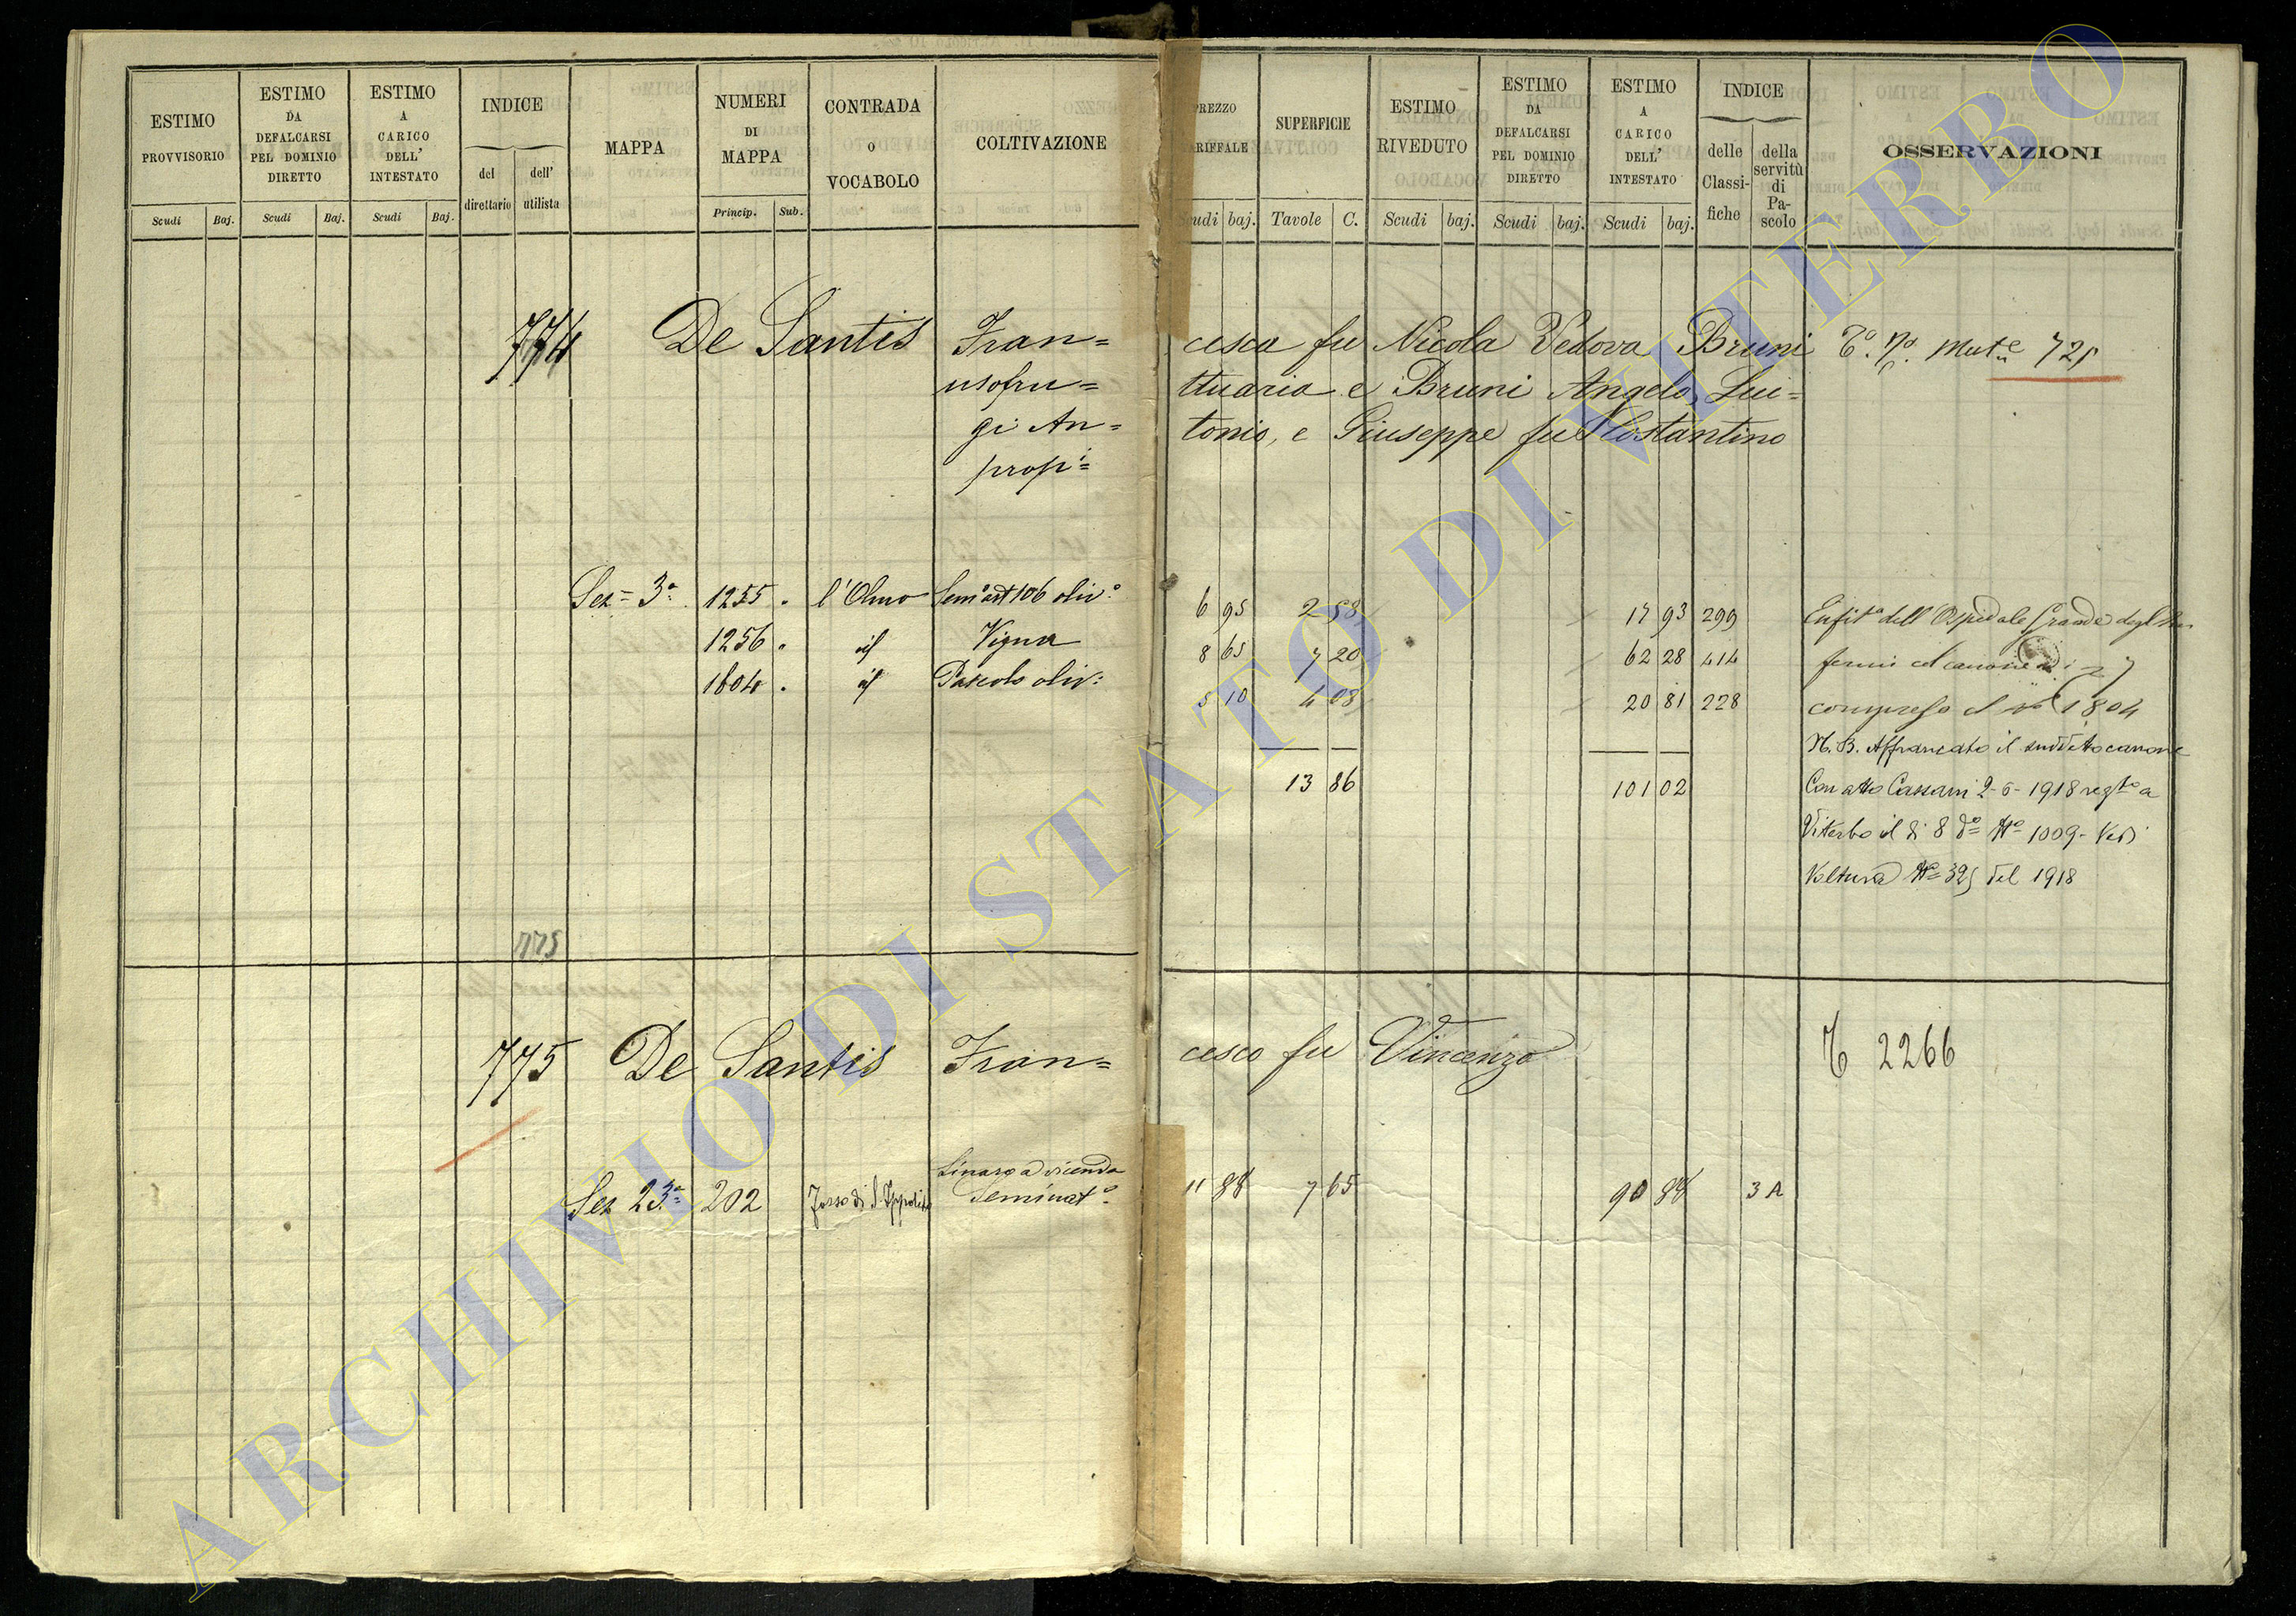 ESTIMO PROVVISORIO
ESTIMO DA DEFALCARSI PEL DOMINIO DIRETTO
ESTIMO A CARICO DELL' INTESTATO
INDICE
del direttario
dell' utilista
MAPPA
NUMERI DI MAPPA
CONTRADA O VOCABOLO
COLTIVAZIONE
PREZZO TARIFFALE
SUPERFICIE
ESTIMO RIVEDUTO
ESTIMO DA DEFALCARSI PEL DOMINIO DIRETTO
ESTIMO A CARICO DELL' INTESTATO
INDICE
delle Classifiche
della servitù di Pascolo
OSSERVAZIONI
Scudi Baj. Scudi Baj. Scudi Baj. Princip. Sub. Scudi baj. Tavole C. Scudi baj. Scudi baj. Scudi baj.
774 De Santis Fran=cesca fu Nicola Vedova Bruni
usofru=ttuaria e Bruni Angelo, Lui=
gi An=tonio, e Giuseppe fu Costantino
prop:=
721
Sez= 3a 1255 . l'Olmo Semo art 106 oliv:o 6 95 2 58 17 93 299 Enfita dell'Ospedale Grande degl'In
1256 . id Vigna 8 65 7 20 62 28 414 fermi
1804 . id Pascolo oliv: 5 10 4 08 20 81 228 compreso il 1804
N.B. Affrancato il suddetto canone
13 86 101 02 Con atto Cassani 2-6-1918 regto a
Viterbo il di 8 do No 1009 - Vedi
Voltura No 325 del 1918
775
775 De Santis Fran=cesco fu Vincenzo 2266
Sez 23a 202 Fosso di S. Ippolito Seminato 11 88 7 65 90 88 3 A
ARCHIVIO DI STATO DI VITERBO